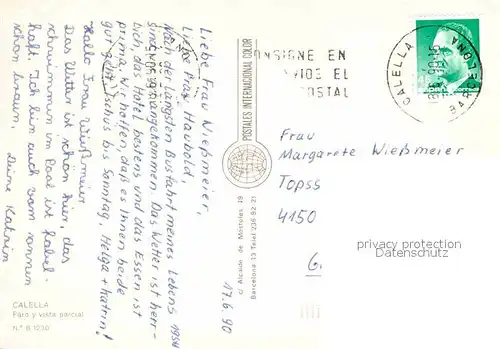 Hallo Frau Wießmeier
Das Wetter ist schön hier, das
schwimmen im Pool ist fabel-
haft. Ich bin auch vom sonnen
schon braun, Deine Katrin
Liebe Frau Wießmeier,
Liebe Max Haubold,
Nach der längsten Busfahrt meines Lebens
sind angekommen. Das Wetter ist herr-
lich, das Hotel bestens und das Essen ist
prima. Wir hoffen, daß es Ihnen beide
gut geht. Tschüs bis Sonntag, Helga + Katrin!
17.6.90
CALELLA
Faro y vista parcial
N.º B 1230
POSTALES INTERNACIONAL COLOR
c/ Alcalde de Móstoles 19
Barcelona 13 Telef 236 92 21
ONSIGNE EN
EL
POSTAL
CALELLA
BARCELONA
Frau
Margarete Wießmeier
Topss
4150
G
privacy protection
Datenschutz